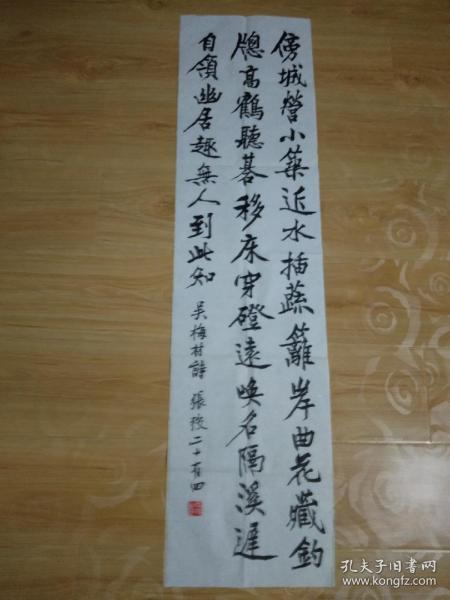 傍城營小築近水插蔬籬岸曲花藏釣
牕髙鶴聽碁移床穿磴遠喚名隔溪遲
自領幽居趣無人到此知
吴梅村詩 張
二十有四
孔夫子旧书网
www.kongfz.com